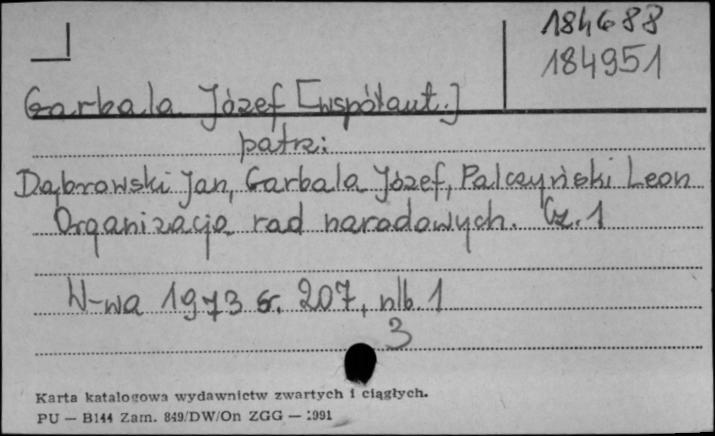 184688
184951
Garbala Józef [współaut.]
patrz:
Dąbrowski Jan, Garbala Józef, Palczyński Leon
Organizacja rad narodowych. Cz. 1
W-wa 1973 s. 207, nlb. 1
3
Karta katalogowa wydawnictw zwartych i ciągłych.
PU — B144 Zam. 849/DW/On ZGG — 1991